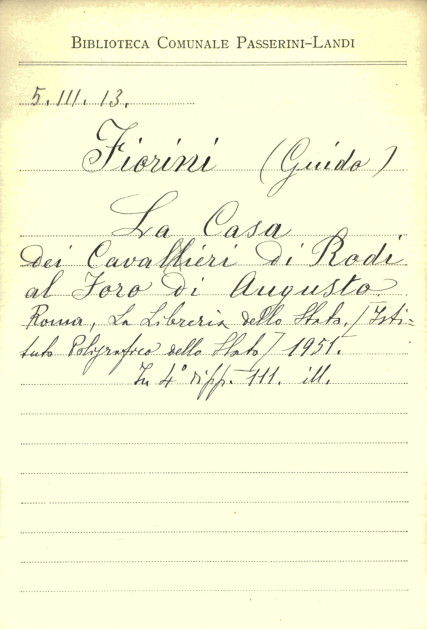 BIBLIOTECA COMUNALE PASSERINI-LANDI
5. III. 13.
Fiorini (Guido)
La Casa
dei Cavallieri di Rodi
al Foro di Augusto
Roma, La Libreria dello Stato. / Isti-
tuto Poligrafico dello Stato / 1951.
In 4° di pp. 111. ill.